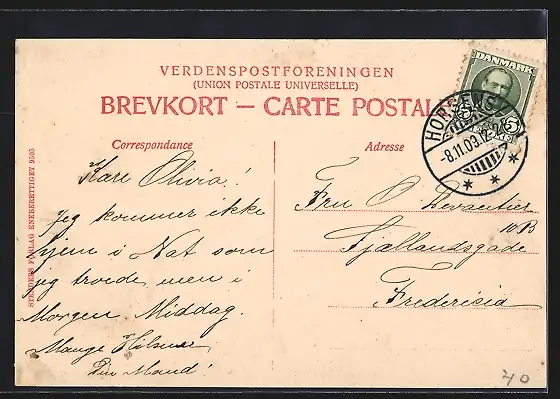 VERDENSPOSTFORENINGEN
(UNION POSTALE UNIVERSELLE)
BREVKORT — CARTE POSTALE
DANMARK
5
HORSENS
-8.11.09.12-2
Correspondance
Adresse
Kære Olivia!
Jeg kommer ikke
hjem i Nat som
jeg troede, men i
Morgen Middag.
Mange Hilsner
Din Mand!
Fru O Devantier
10B
Sjællandsgade
Fredericia
STENDERS FORLAG ENEBERETTIGET 9505
40